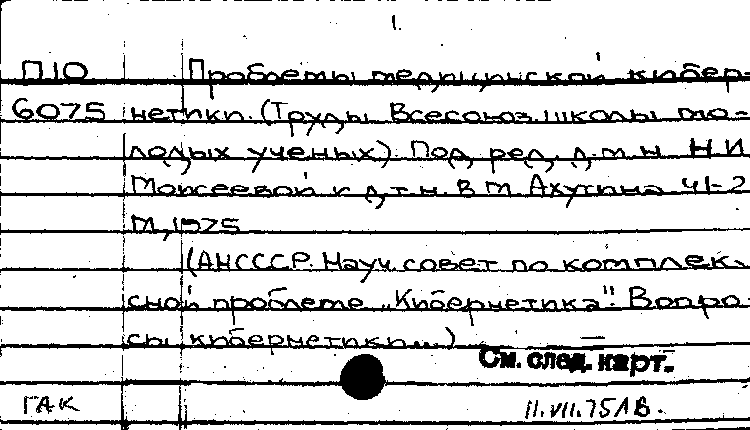 1.
П10 Проблемы медицинской кибер-
6075 нетики. (Труды Всесоюз. школы мо-
лодых ученых). Под ред. д.м.н. Н.И.
Моисеевой и д.т.н. В.М. Ахутина Ч1-2
М., 1975
(АНСССР. Науч. совет по комплек-
сной проблеме „Кибернетика". Вопро-
сы кибернетики...)
См. след. карт.
ГАК 11.VII.75 ЛВ.